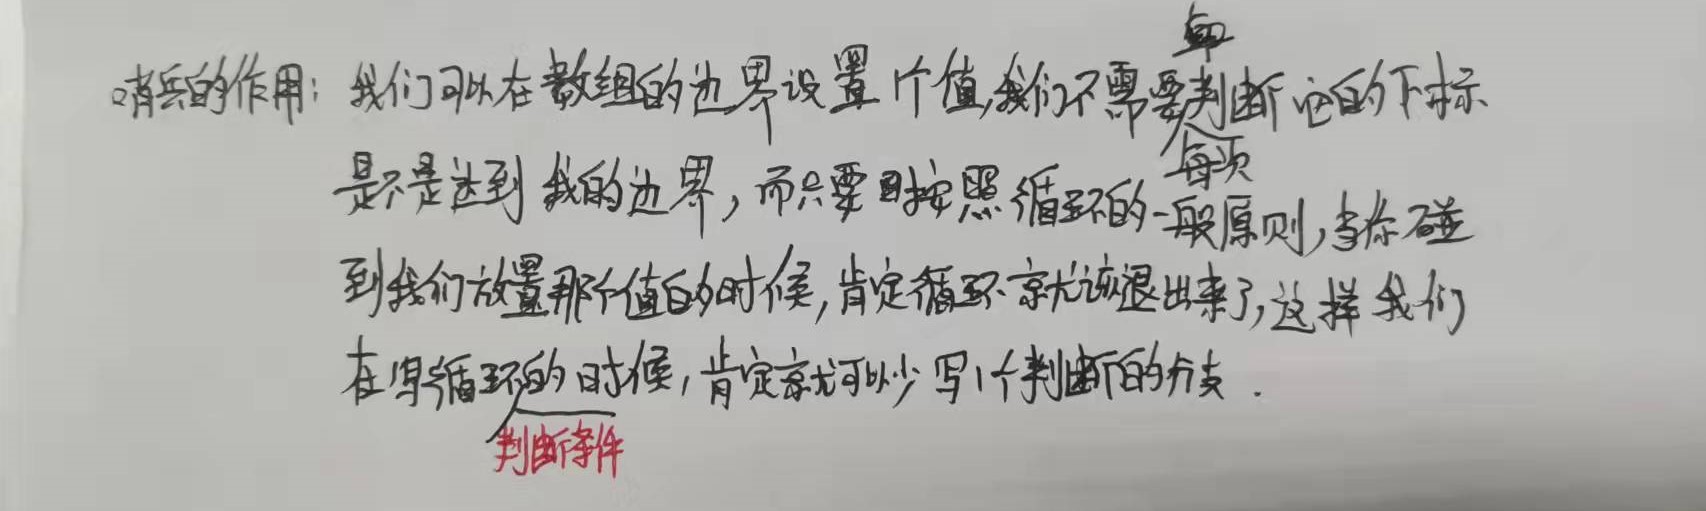 哨兵的作用：我们可以在数组的边界设置1个值，我们不需要每次判断它的下标
是不是达到我的边界，而只要按照循环的一般原则，当你碰
到我们放置那个值的时候，肯定循环就应该退出来了，这样我们
在写循环的时候，肯定就可以少写1个判断的分支．
判断条件